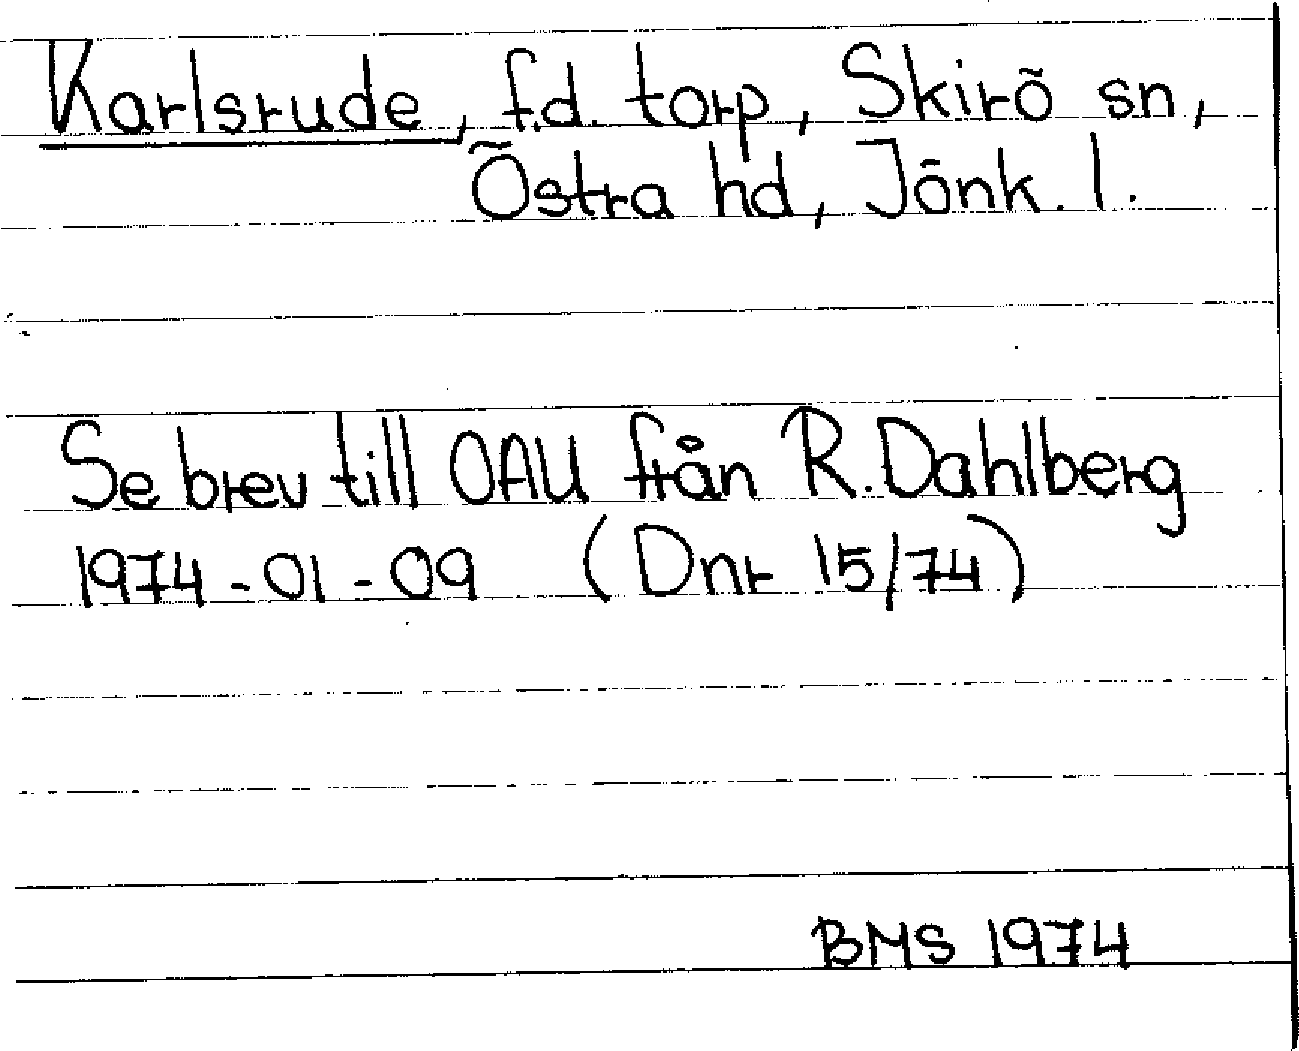 Karlsrude, f.d. torp, Skirö sn,
Östra hd, Jönk. l.
Se brev till OAU från R. Dahlberg
1974-01-09 (Dnr 15/74)
BMS 1974